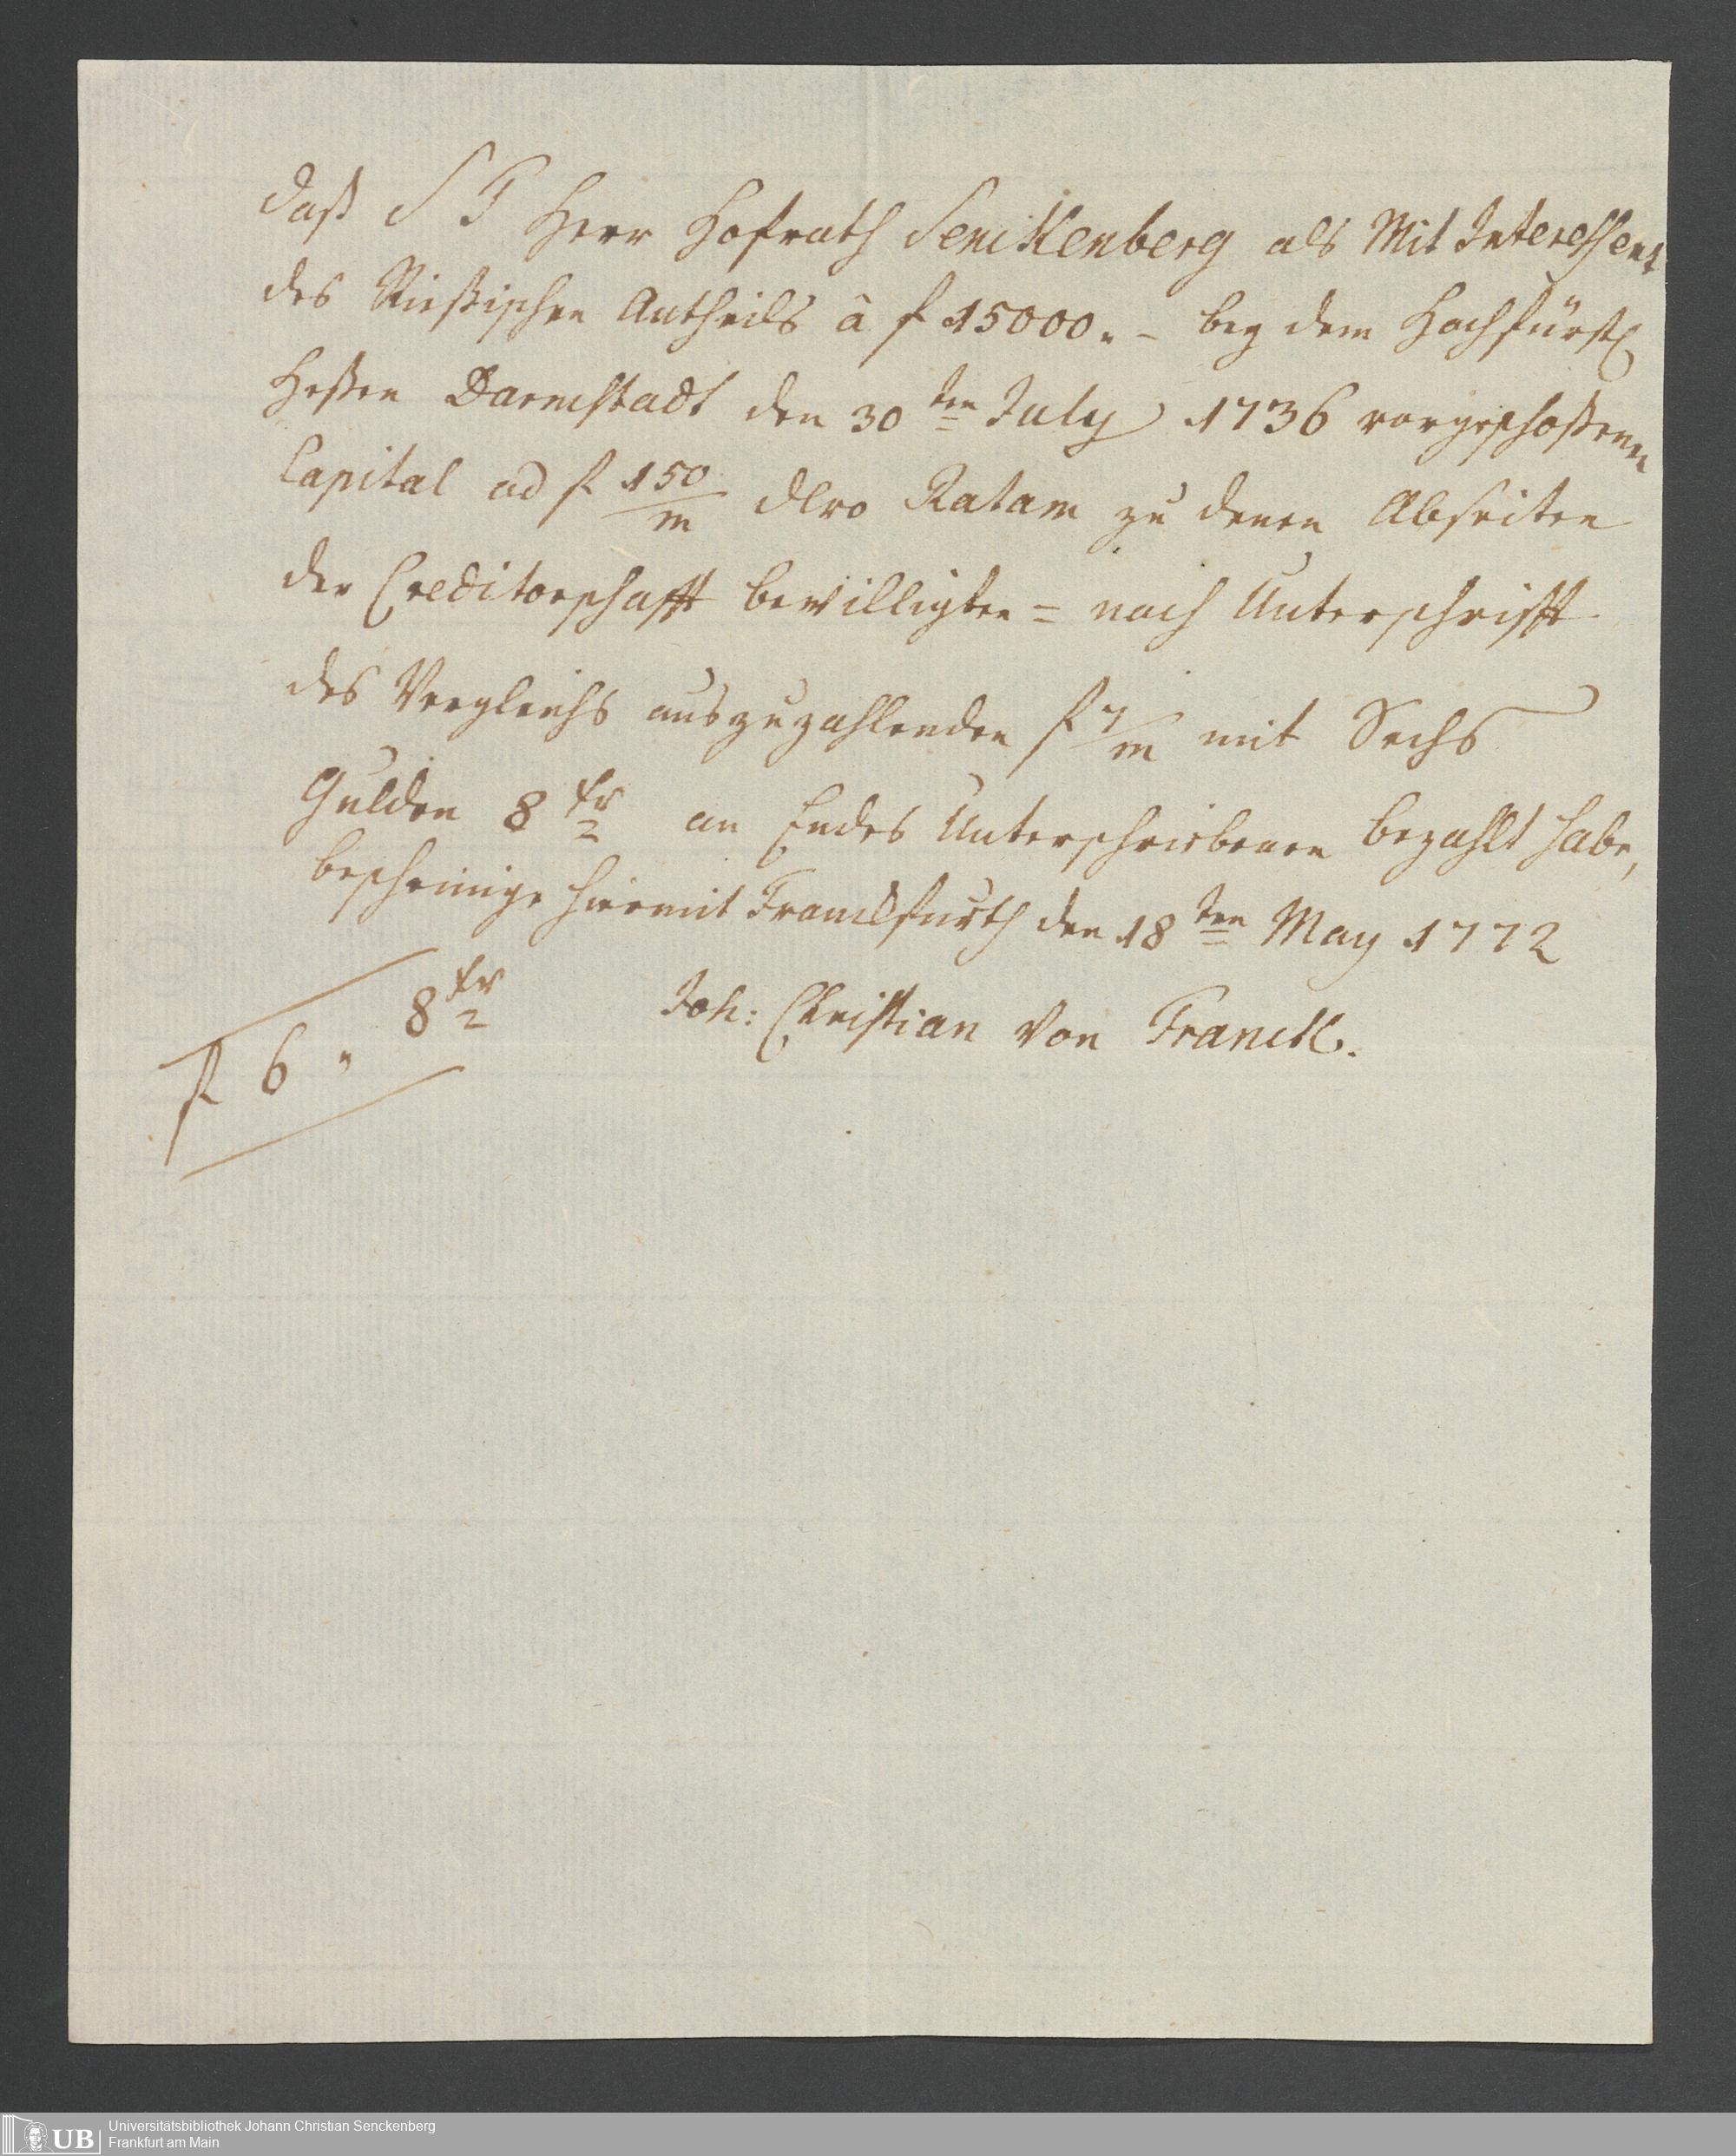 daß S T Herr Hofrath Senckenberg als Mit Interessent
des Rießischen Antheils â f 15000. - bey dem Hochfürstl
Heßen Darmstadt den 30ten July 1736 vorgeschoßenen
Capital ad f 150/m dero Ratam zu denen Abseiten
der Creditorschafft bewilligten = nach Unterschrifft
des Vergleichs auszuzahlenden f 7/m mit Sechs
Gulden 8 xr 2 an Endes Unterschriebenen bezahlt habe,
bescheinige hiermit Franckfurth den 18ten May 1772
f 6 " 8 xr 2
Joh: Christian von Franck.
UB
Universitätsbibliothek Johann Christian Senckenberg
Frankfurt am Main